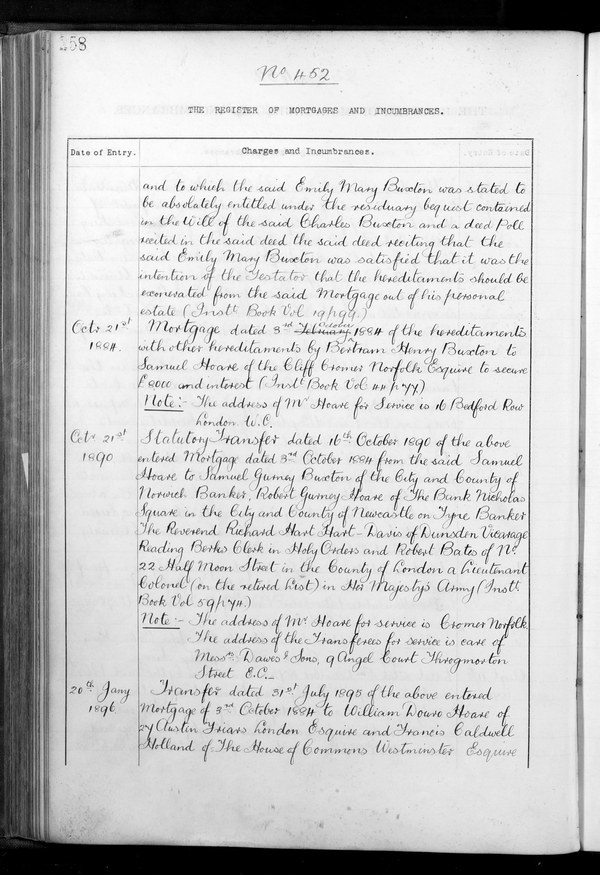 258
No 452
THE REGISTER OF MORTGAGES AND INCUMBRANCES.
Date of Entry.
Charges and Incumbrances.
and to which the said Emily Mary Buxton was stated to
be absolutely entitled under the residuary bequest contained
in the Will of the said Charles Buxton and a deed Poll
recited in the said deed the said deed reciting that the
said Emily Mary Buxton was satisfied that it was the
intention of the Testator that the hereditaments should be
exonerated from the said Mortgage out of his personal
estate (Instt. Book Vol 19 p 99.)
Octr. 21st 1884.
Mortgage dated 3rd February October 1884 of the hereditaments
with other hereditaments by Bertram Henry Buxton to
Samuel Hoare of the Cliff Cromer Norfolk Esquire to secure
£8000 and interest (Instt. Book Vol 44 p 77)
Note:- The address of Mr Hoare for Service is 16 Bedford Row
London W.C.
Octr 21st 1890
Statutory Transfer dated 16th October 1890 of the above
entered Mortgage dated 3rd October 1884 from the said Samuel
Hoare to Samuel Gurney Buxton of the City and County of
Norwich Banker, Robert Gurney Hoare of The Bank Nicholas
Square in the City and County of Newcastle on Tyne Banker
The Reverend Richard Hart Hart-Davis of Dunsden Vicarage
Reading Berks Clerk in Holy Orders and Robert Bates of No.
22 Half Moon Street in the County of London a Lieutenant
Colonel (on the retired List) in Her Majesty's Army (Instt.
Book Vol 59 p 74.)
Note:- The address of Mr Hoare for service is Cromer Norfolk
The address of the Transferees for service is care of
Messrs. Dawes & Sons, 9 Angel Court Throgmorton
Street E.C.
20th Jany 1896
Transfer dated 31st July 1895 of the above entered
Mortgage of 3rd October 1884 to William Douro Hoare of
27 Austin Friars London Esquire and Francis Caldwell
Holland of The House of Commons Westminster Esquire